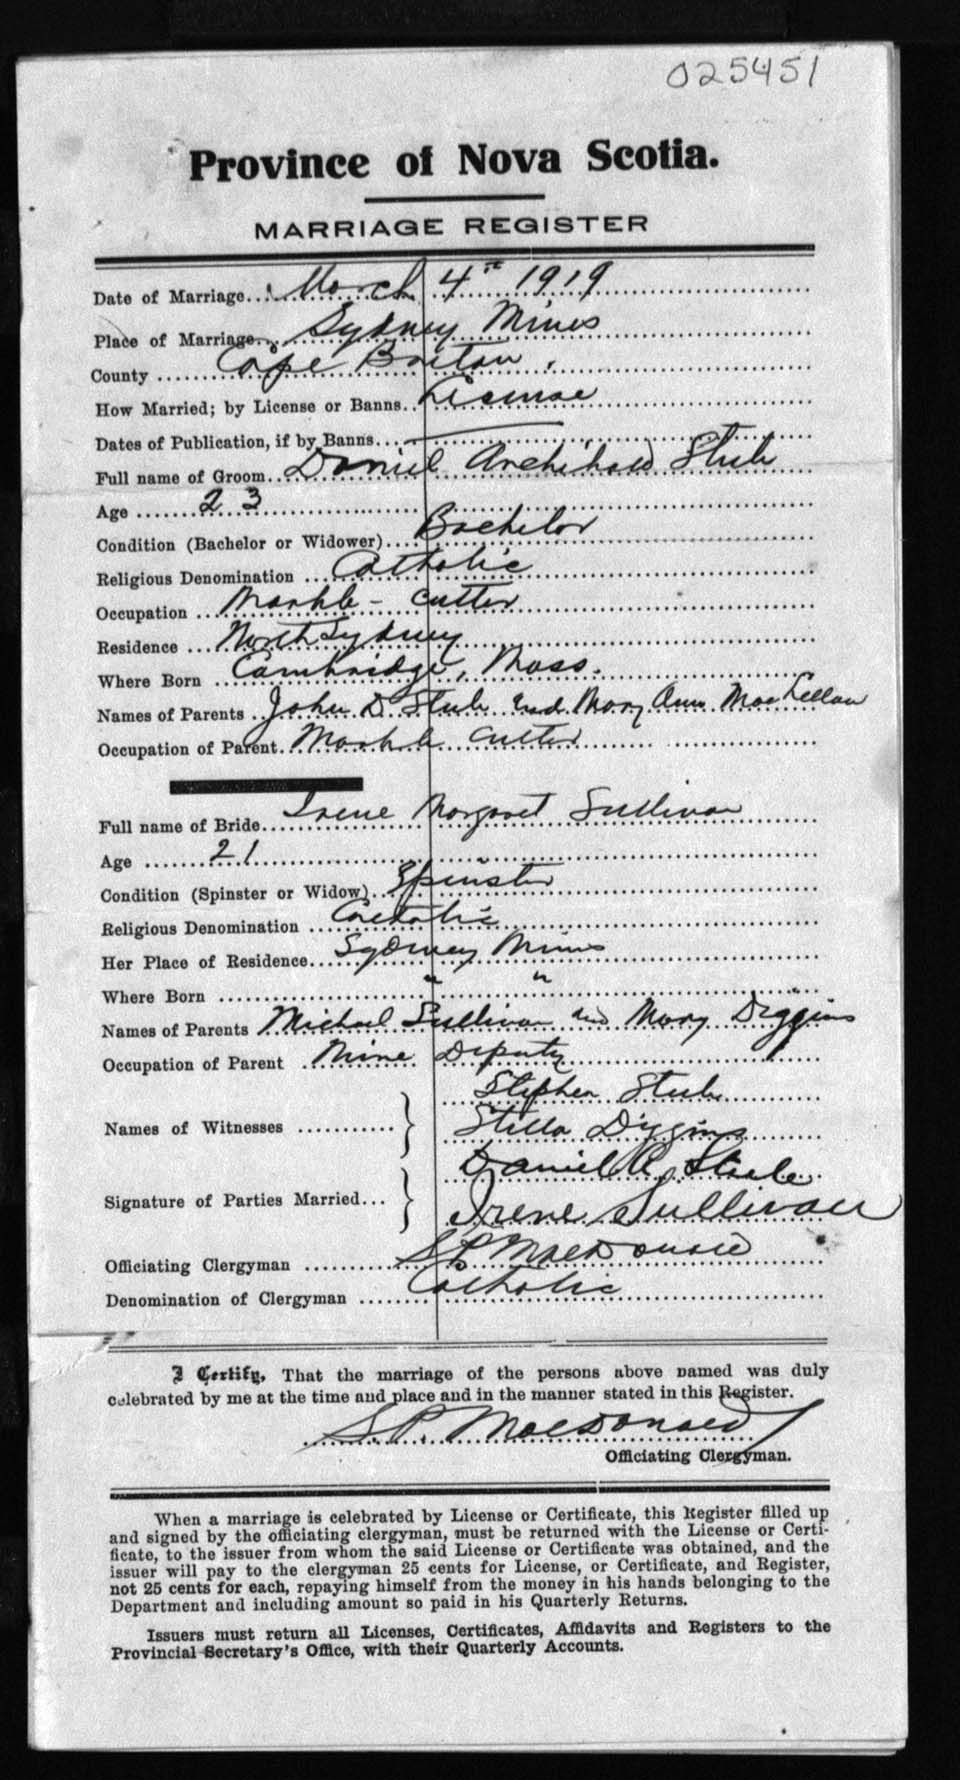 025451
Province of Nova Scotia.
MARRIAGE REGISTER
Date of Marriage... March 4th 1919
Place of Marriage... Sydney Mines
County ... Cape Breton
How Married; by License or Banns.. License
Dates of Publication, if by Banns... —
Full name of Groom... Daniel Archibald Steele
Age ... 23
Condition (Bachelor or Widower).... Bachelor
Religious Denomination ... Catholic
Occupation ... Marble - cutter
Residence ... North Sydney
Where Born ... Cambridge, Mass.
Names of Parents .. John D Steele and Mary Ann MacLellan
Occupation of Parent. Marble cutter
Full name of Bride... Irene Margaret Sullivan
Age ... 21
Condition (Spinster or Widow).. Spinster
Religious Denomination ... Catholic
Her Place of Residence... Sydney Mines
Where Born ... " "
Names of Parents Michael Sullivan and Mary Diggins
Occupation of Parent ... Mine Deputy
Stephen Steele
Names of Witnesses ...
Stella Diggins
Daniel A. Steele
Signature of Parties Married...
Irene Sullivan
Officiating Clergyman ... S.P. MacDonald
Denomination of Clergyman ... Catholic
I Certify, That the marriage of the persons above named was duly
celebrated by me at the time and place and in the manner stated in this Register.
S.P. MacDonald
Officiating Clergyman.
When a marriage is celebrated by License or Certificate, this Register filled up
and signed by the officiating clergyman, must be returned with the License or Certi-
ficate, to the issuer from whom the said License or Certificate was obtained, and the
issuer will pay to the clergyman 25 cents for License, or Certificate, and Register,
not 25 cents for each, repaying himself from the money in his hands belonging to the
Department and including amount so paid in his Quarterly Returns.
Issuers must return all Licenses, Certificates, Affidavits and Registers to the
Provincial Secretary's Office, with their Quarterly Accounts.